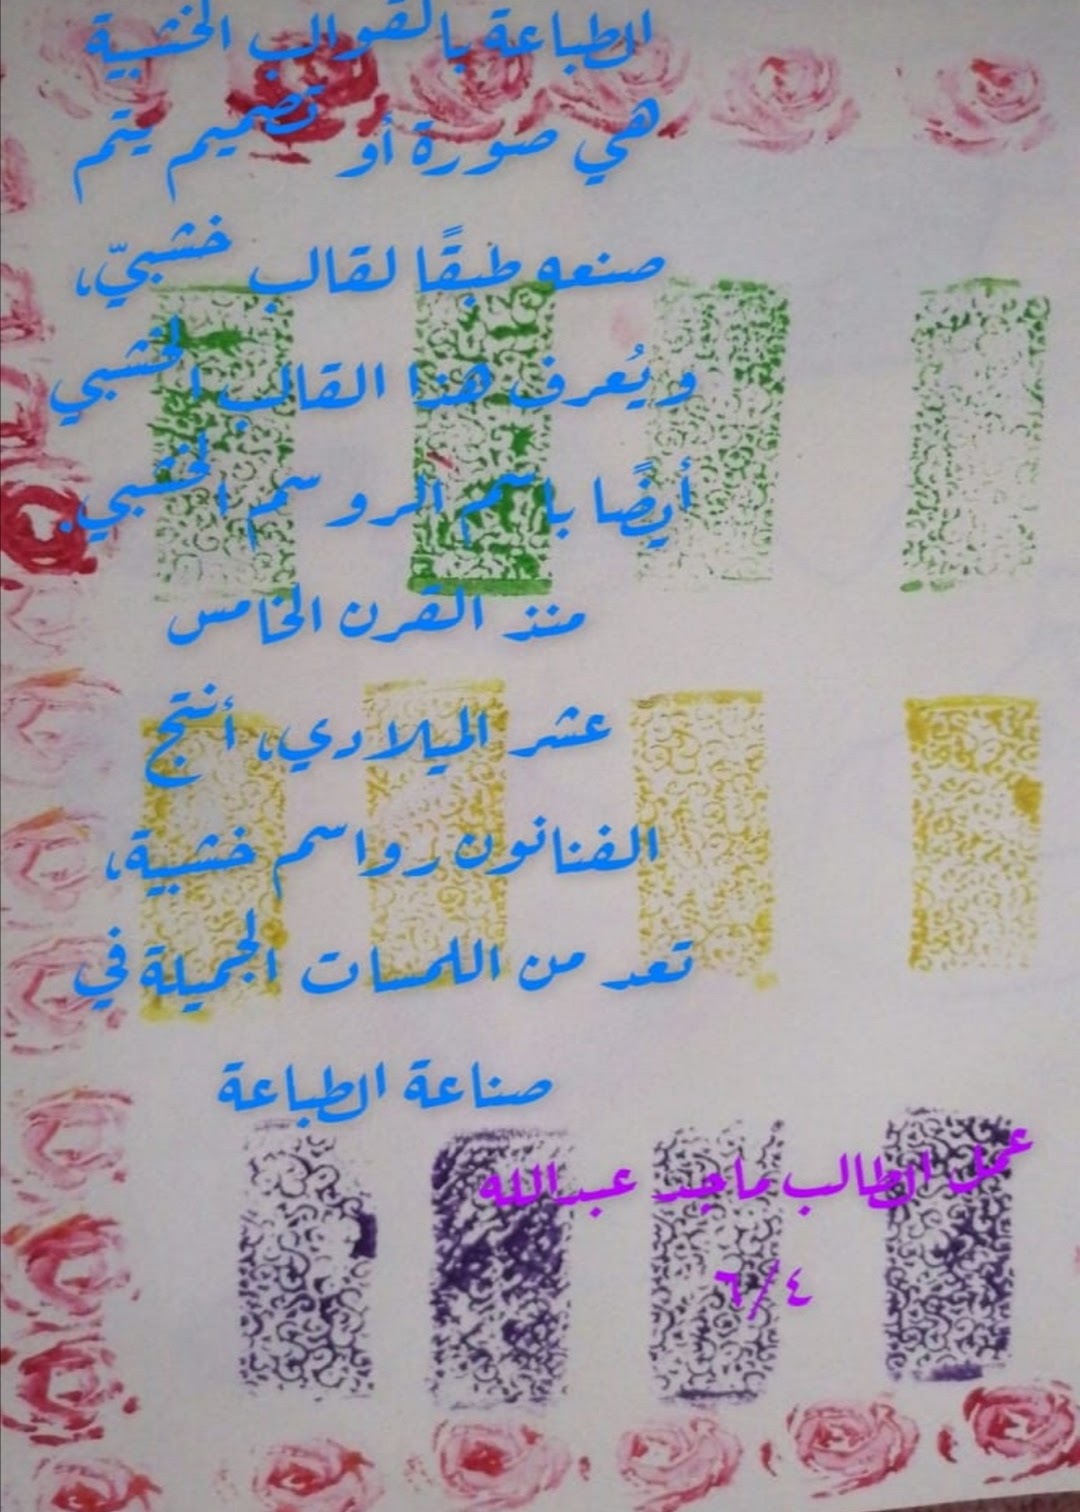 الطباعة بالقوالب الخشبية
هي صورة أو تصميم يتم
صنعه طبقًا لقالب خشبيّ،
ويُعرف هذا القالب الخشبي
أيضًا باسم الروسم الخشبي.
منذ القرن الخامس
عشر الميلادي، أنتج
الفنانون رواسم خشبية،
تعد من اللمسات الجميلة في
صناعة الطباعة
عمل الطالب ماجد عبدالله
٦/٤